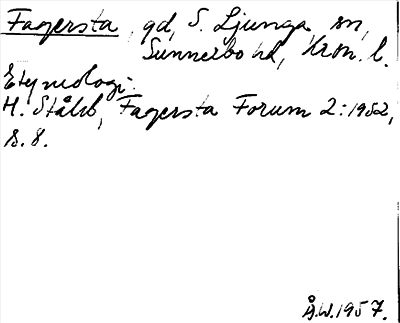 Fagersta, gd, S. Ljunga sn,
Sunnerbo hd, Kron. l.
Etymologi.
H. Ståhl, Fagersta Forum 2:1952,
s. 8.
Å.W.1957.